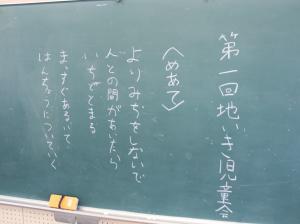 第一回地いき児童会
〈めあて〉
よりみちをしないで
人との間があいたら
いちどとまる
まっすぐあるいて
はんちょうについていく